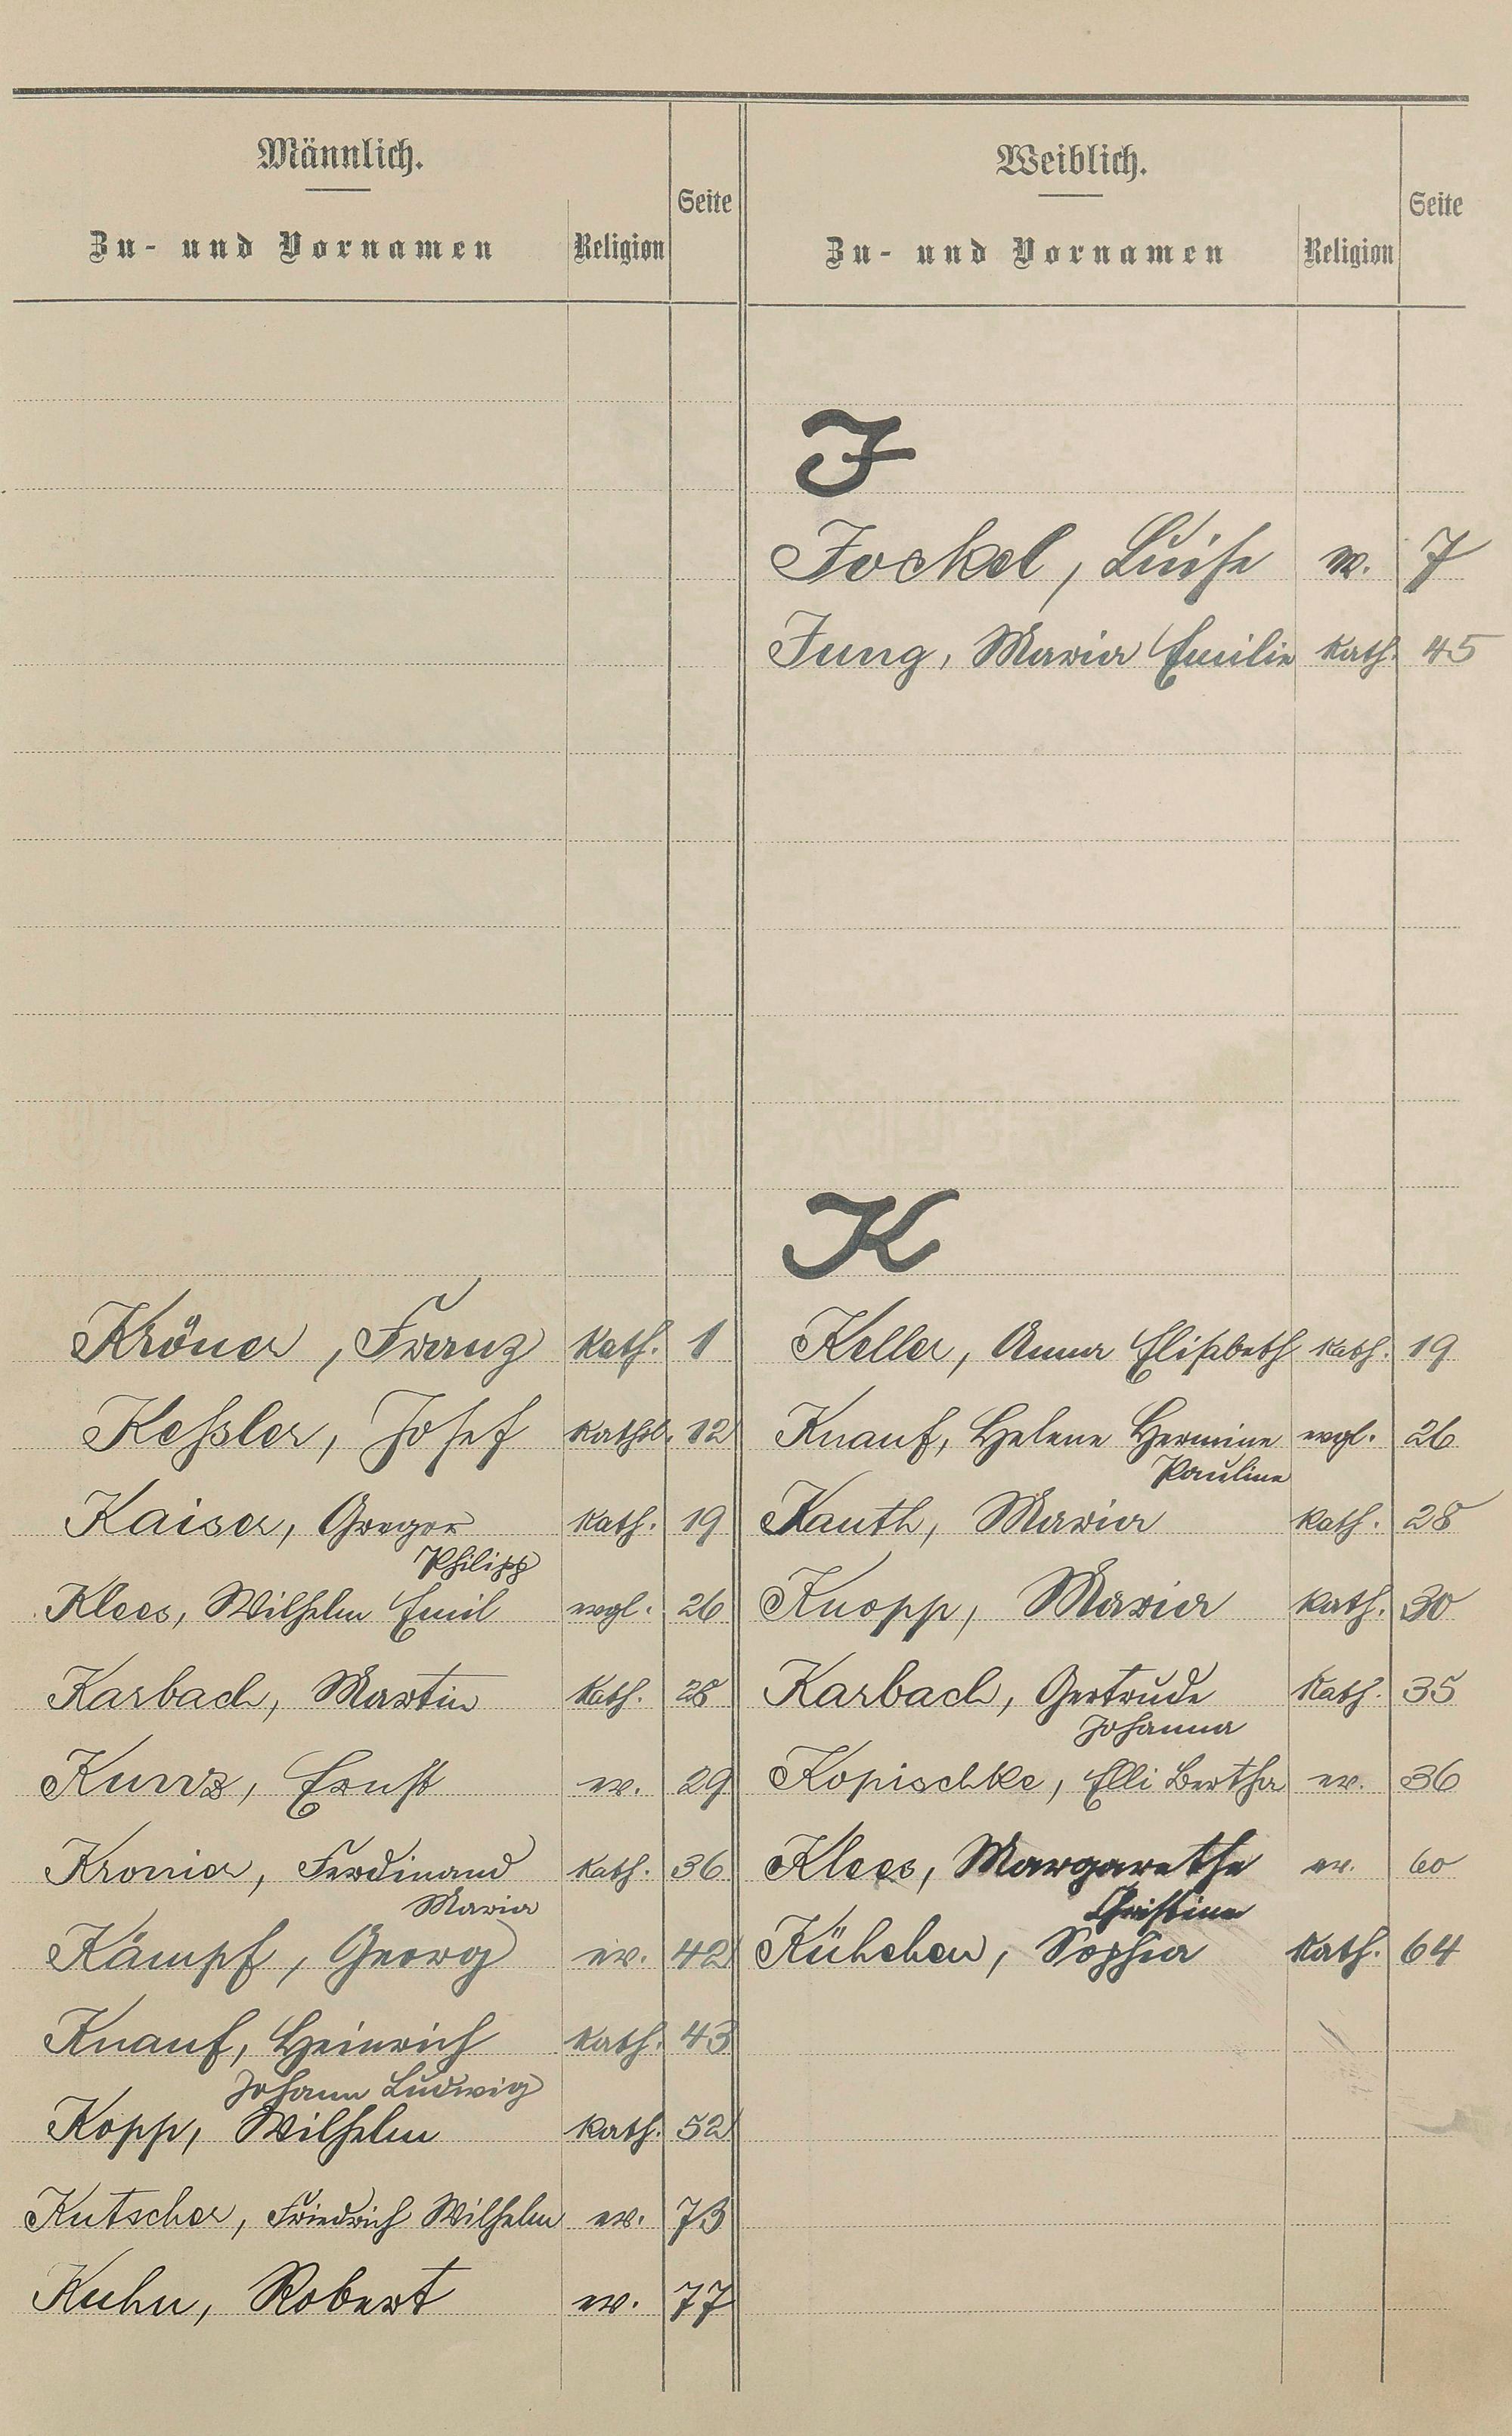 Männlich.
Zu- und Vornamen Religion Seite
Kröner, Franz kath. 1
Keßler, Josef kathol. 12
Kaiser, Gregor kath. 19
Philipp
Klees, Wilhelm Emil evgl. 26
Karbach, Martin kath. 28
Kurz, Ernst ev. 29
Kronier, Ferdinand kath. 36
Maria
Kämpf, Georg ev. 42
Knauf, Heinrich kath. 43
Johann Ludwig
Kopp, Wilhelm kath. 52
Kutscher, Friedrich Wilhelm ev. 73
Kuhn, Robert ev. 77
Weiblich.
Zu- und Vornamen Religion Seite
J
Jockel, Luise ev. 7
Jung, Maria Emilie kath. 45
K
Keller, Anna Elisabeth kath. 19
Knauf, Helene Hermine evgl. 26
Pauline
Kauth, Maria kath. 28
Knopp, Maria kath. 30
Karbach, Gertrude kath. 35
Johanna
Kopischke, Elli Bertha ev. 36
Klees, Margarethe ev. 60
Christine
Kühchen, Sophia kath. 64